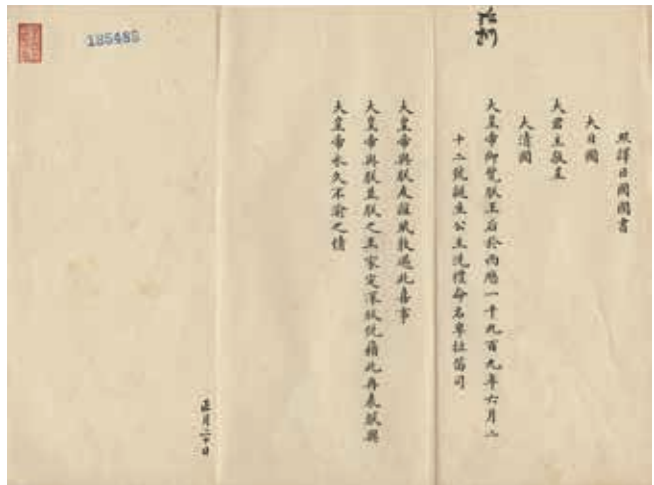 照譯日國國書
大日國
大君主敬呈
大清國
大皇帝御覽朕王后於西歷一千九百九年六月二
十二號誕生公主洗禮命名卑拉笛司
大皇帝與朕友誼夙敦遇此喜事
大皇帝與朕並朕之王家定深欣悅藉此再表朕與
大皇帝永久不渝之情
正月二十日